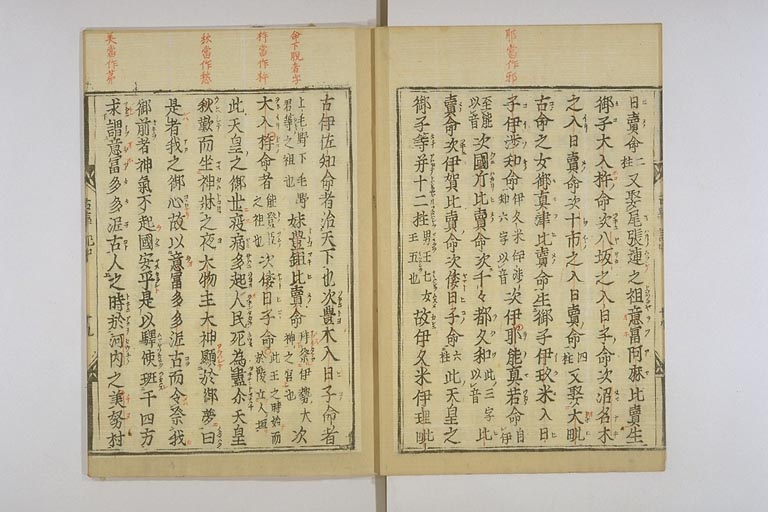 耶當作邪
日賣命二柱又娶尾張連之祖意富阿麻比賣生
御子大入杵命次八坂之入日子命次沼名木
之入日賣命次十市之入日賣命四柱又娶大毗
古命之女御真津比賣命生御子伊玖米入日
子伊渉知命伊久米伊渉知六字以音次伊耶能真若命自伊
至能以音次國片比賣命次千々都久和此三字以音比
賣命次伊賀比賣命次倭日子命六柱此天皇之
御子等并十二柱男王七女王五也故伊久米伊理毗
命下脱者字
當作杵
秋當作愁
美當作
古伊佐知命者治天下也次豊木入日子命者
上毛野下毛野君等之祖也妹豊鉏比賣命拜祭伊勢大神之宮也次
大入桙命者能登臣之祖也次倭日子命此王之時始而於陵立人垣
此天皇之御世疫病多起人民死為盡尒天皇
秋歎而坐神牀之夜大物主大神顯於御夢曰
是者我之御心故以意富多多泥古而令祭我
御前者神氣不起國安平是以驛使班于四方
求謂意富多多泥古人之時於河内之美努村